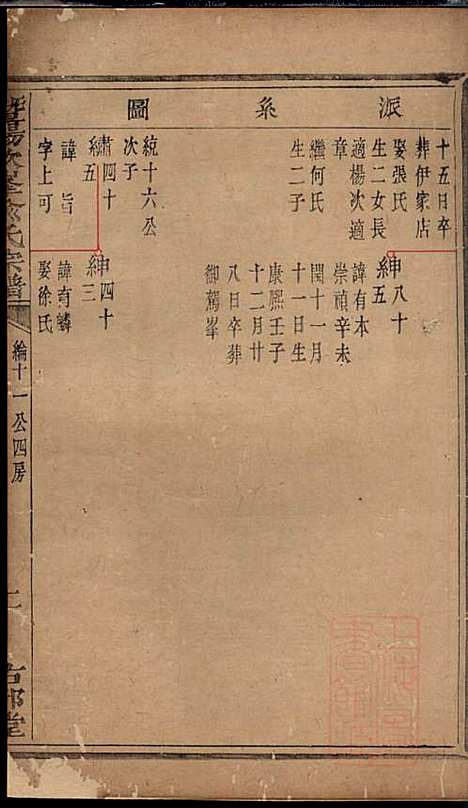 派系圖
十五日卒
葬伊家店
娶張氏
生二女長
適楊次適
章
繼何氏
生二子
紳八十
五
諱有本
崇禎辛未
閏十一月
十一日生
康熙壬子
十二月廿
八日卒葬
御駕峯
統十六公
次子
肅四十
繡五
諱旨
字上可
紳四十
三
諱有麟
娶徐氏
氏宗譜
綸十一公四房
二